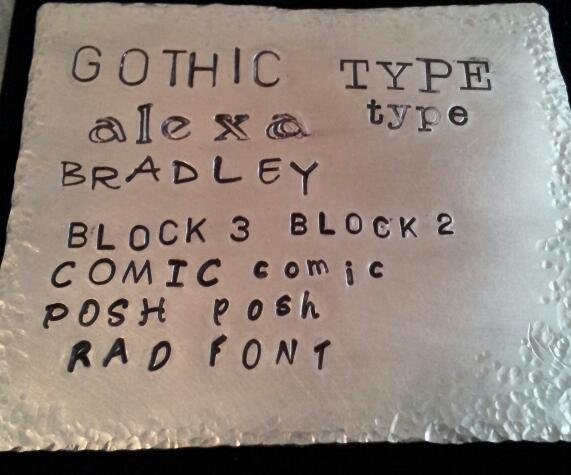 GOTHIC TYPE
alexa type
BRADLEY
BLOCK 3 BLOCK 2
COMIC comic
POSH posh
RAD FONT